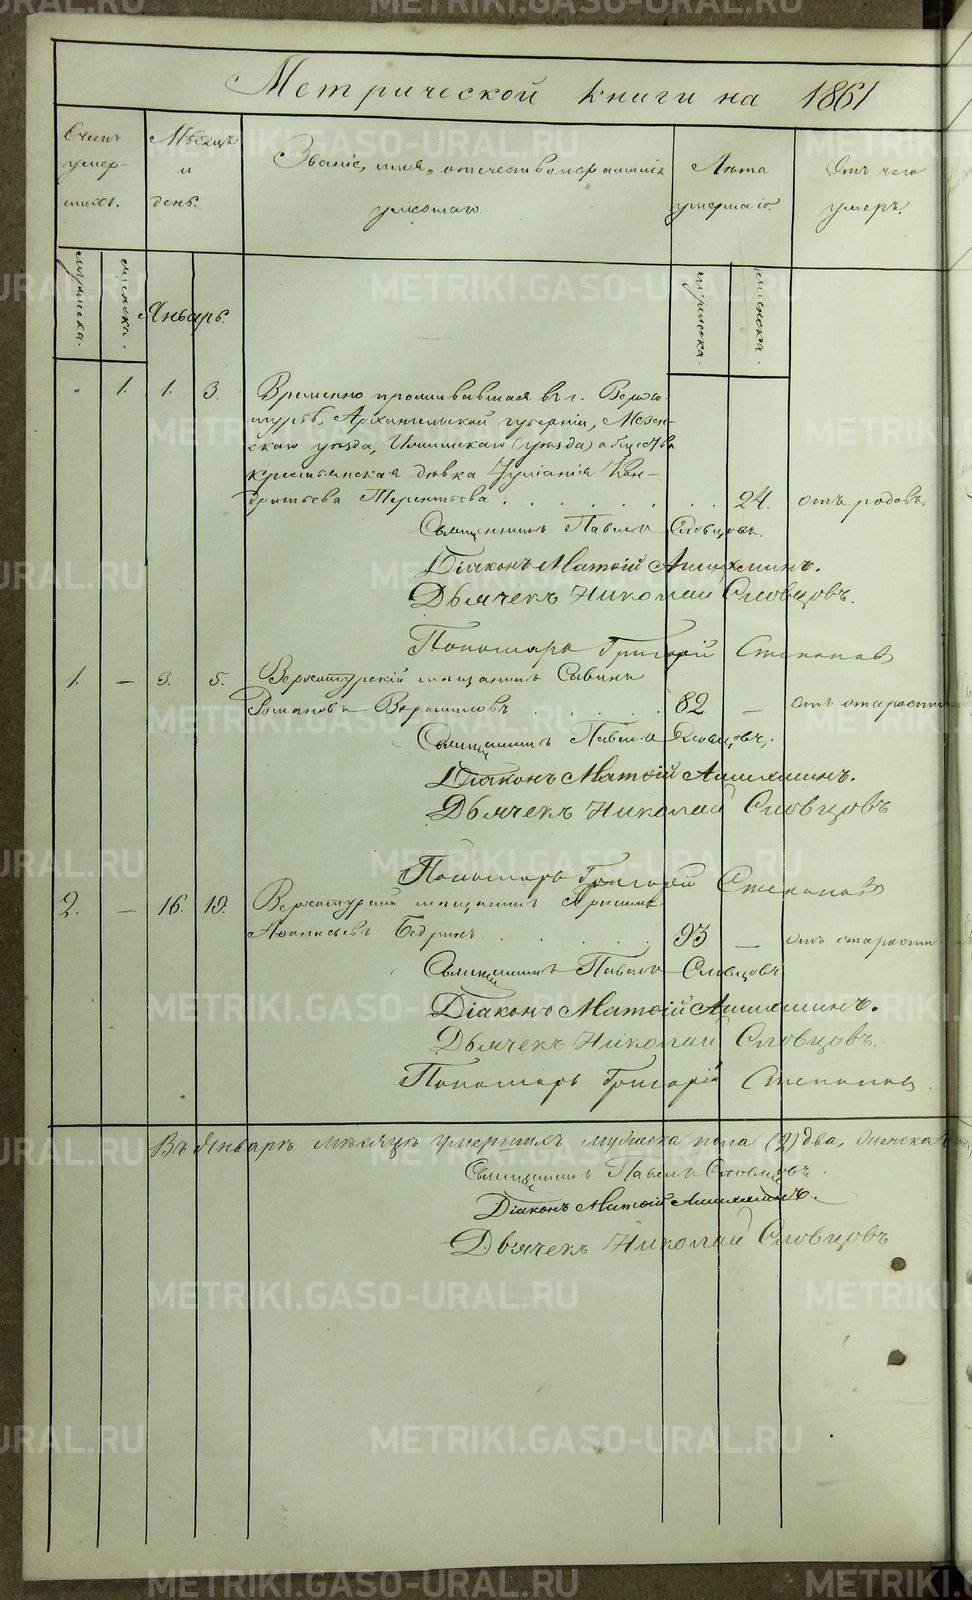 Метрической книги на 1861
Счетъ умер- шихъ.
Мѣсяцъ и день.
Званіе, имя, отчество и фамилія
умершаго.
Лѣта умершаго.
Отъ чего умеръ.
мужеска. женска.
Январь.
мужеска. женска.
„ 1. 1. 3. Временно проживавшая въ г. Верхо-
турьѣ, Архангельской губерніи, Мезен-
скаго уѣзда, (уѣзда) общества
крестьянская дѣвка Іуліанія Кон-
дратьева Терентьева 24. отъ родовъ.
Священникъ Павелъ Словцовъ.
Діаконъ Матѳій
Дьячекъ Николай Словцовъ.
Пономарь Григорій Степановъ
1. — 3. 5. Верхотурскій мѣщанинъ Саввинъ
Романовъ 82 — отъ старости
Священникъ Павелъ Словцовъ.
Діаконъ Матѳій
Дьячекъ Николай Словцовъ
Пономарь Григорій Степановъ
2. — 16. 19. Верхотурскій мѣщанинъ
Аѳанасьевъ Бедринъ 93 — отъ старости
Священникъ Павелъ Словцовъ
Діаконъ Матѳій
Дьячекъ Николай Словцовъ.
Пономарь Григорій Степановъ
Въ Январѣ мѣсяцѣ умершихъ мужеска пола (2) два, женска
Священникъ Павелъ Словцовъ.
Діаконъ Матѳій
Дьячекъ Николай Словцовъ
METRIKI.GASO-URAL.RU